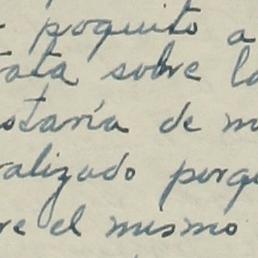 poquito a
rata sobre la
staría de m
ralizado porq
re el mismo